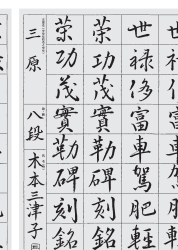 世禄侈富車駕肥軽
策功茂實勒碑刻銘
策功茂實勒碑刻銘
三原 八段 木本三津子